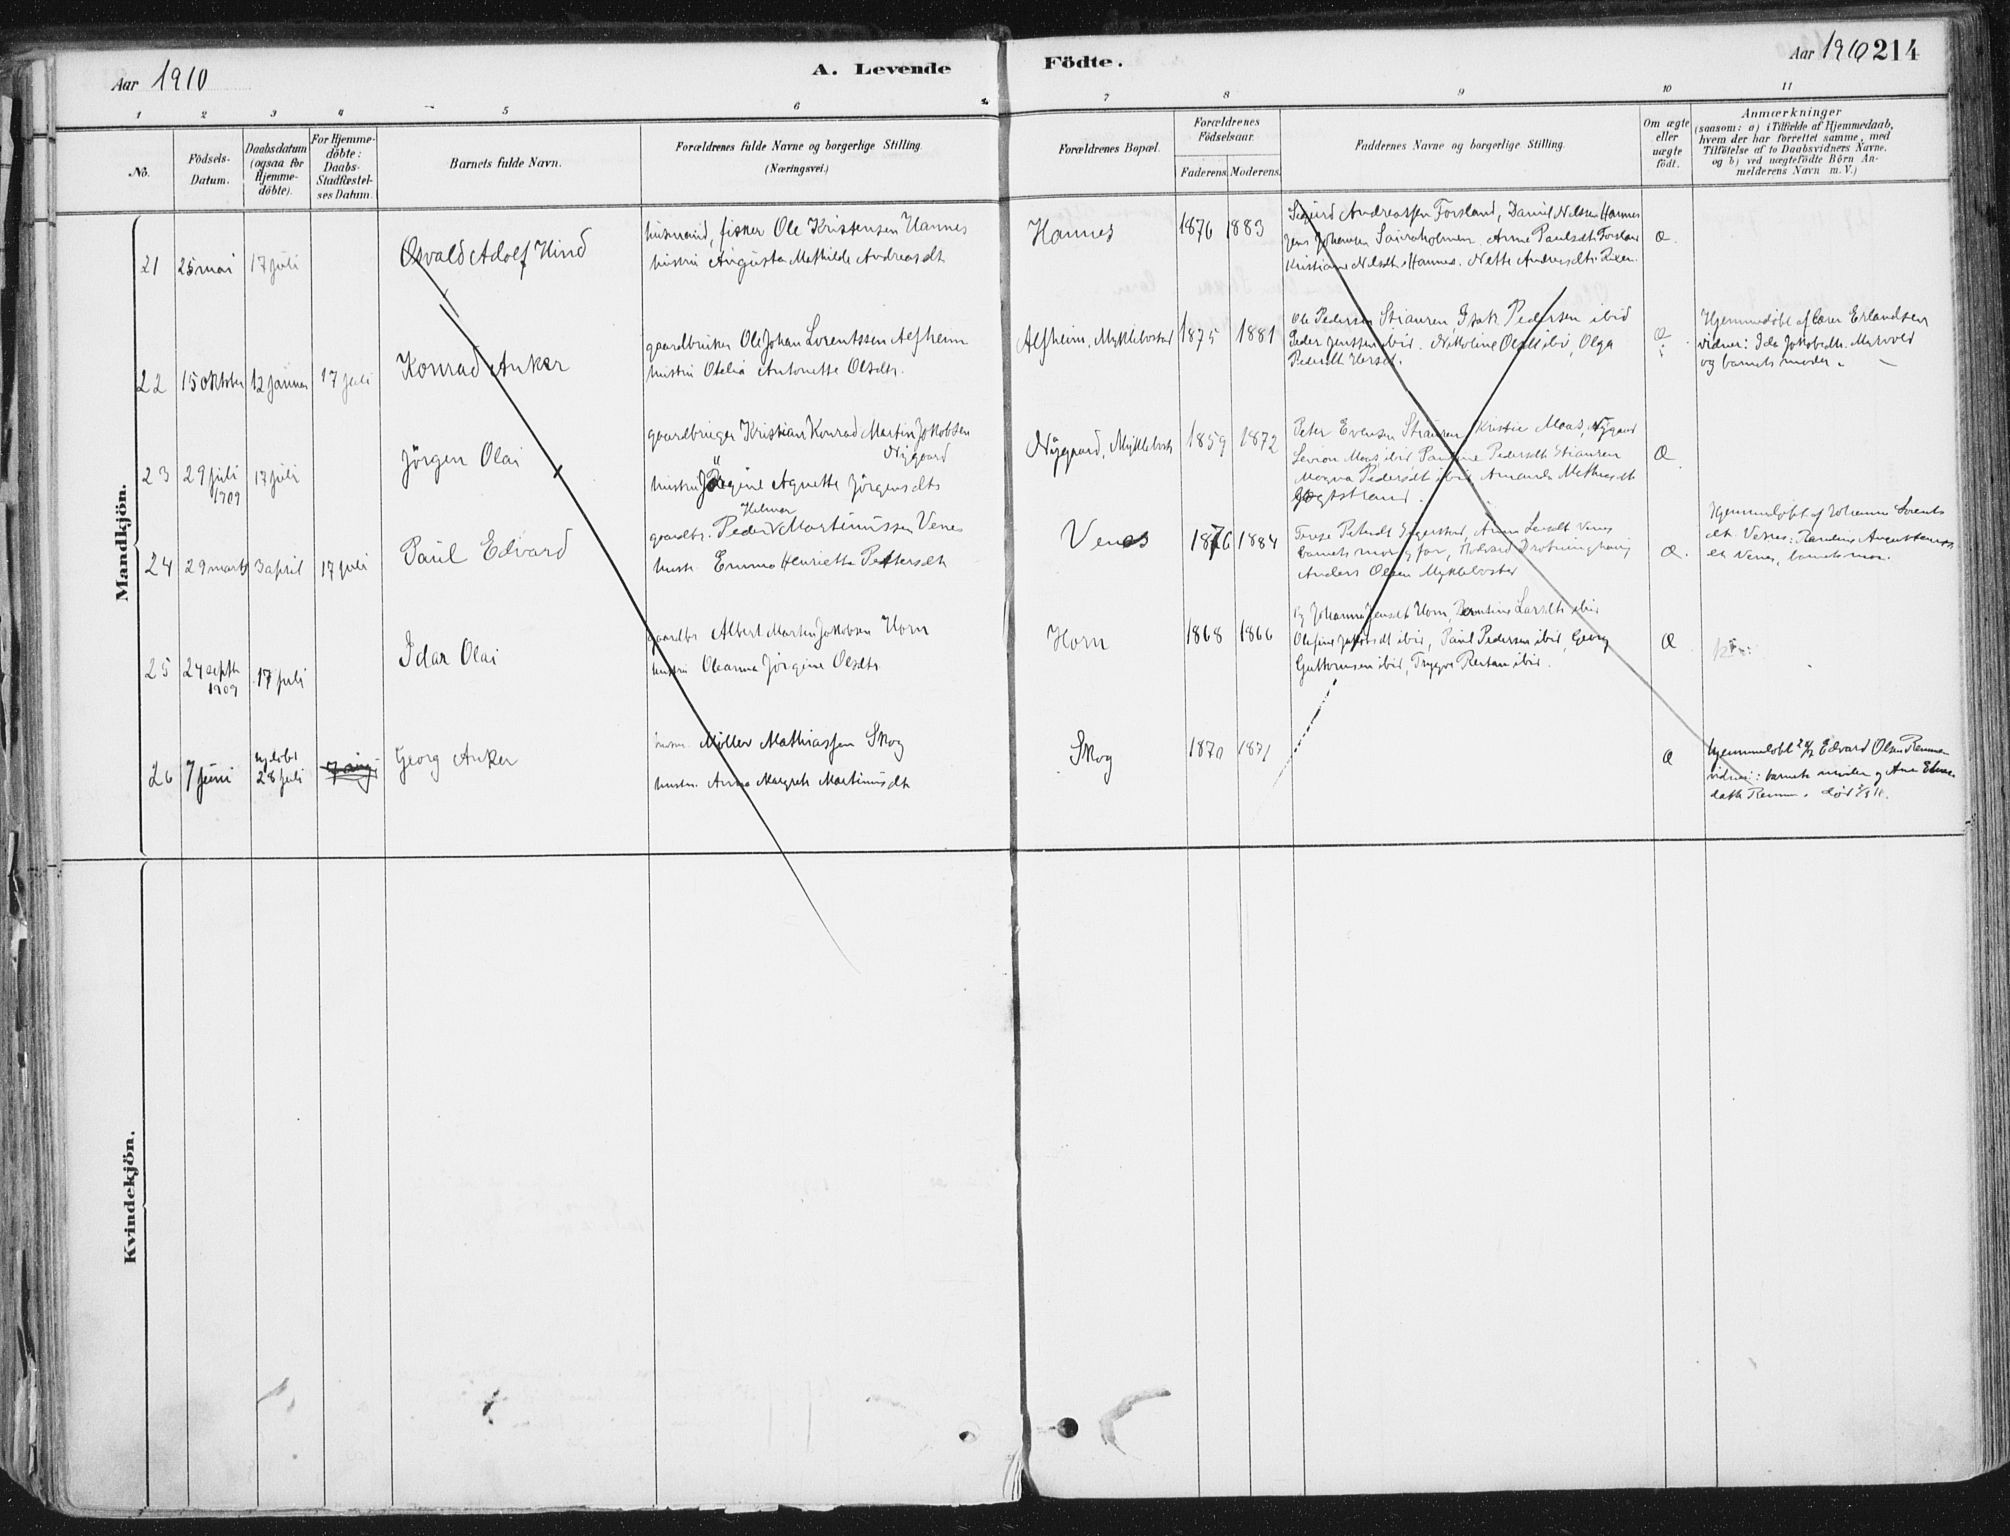 Aar 1910
A. Levende Födte.
Aar 1910 214
1 2 3 4 5 6 7 8 9 10 11
No.
Födsels-Datum.
Daabsdatum (ogsaa for Hjemme-döbte).
For Hjemme-döbte: Daabs-Stadfæstel-ses Datum.
Barnets fulde Navn.
Forældrenes fulde Navne og borgerlige Stilling. (Næringsvei.)
Forældrenes Bopæl.
Forældrenes Födselsaar.
Faderens. Moderens.
Faddernes Navne og borgerlige Stilling.
Om ægte eller uægte födt.
Anmærkninger
(saasom: a) i Tilfælde af Hjemmedaab,
hvem der har forrettet samme, med
Tilföielse af to Daabsvidners Navne.
og b) ved uægtefödte Börn An-
melderens Navn m. V.)
Mandkjön.
21 25 mai 17 juli
Osvald Adolf Hind
husmand, fisker Ole Kristensen Hannes
hustru Augusta Mathilde Andreasdt
Hannes 1876 1883
Sigurd Andreassen Forsland, Daniel Nilssen Hannes
Jens Johansen Arne Paulsdt Forsland
Kristiane Nilsdt Hannes. Nette Andersdt
Æ.
22 15 oktober 12 januar 17 juli
Konrad Anker
gaardbruker Ole Johan Lorentssen Alfheim
hustru Otelia Antonette Olsdtr.
Alfheim, Myklebostad 1875 1881
Ole Pedersen Strauren, Isak Pedersen ibid
Peder Jenssen ibid. Nikoline Olsdt ibid, Olga
Pedersdt
Æ.
Hjemmedøbt af lærer Erlandsen
vidner: Ida Jakobsdtr.
og barnets moder.
23 29 juli 1909 17 juli
Jörgen Olai
gaardbruger Kristian Konrad Martin Jakobsen
Nygaard
hustru Jörgine Agnette Jörgensdtr
Nygaard, Myklebostad 1859 1872
Peter Evensen Strauren, Kristie Moas, Nygaard
Moas ibid Pauline Pedersdt Strauren
Magna Pedersdt ibid Amanda Mathiasdt
Æ.
24 29 marts 3 april 17 juli
Paul Edvard
Helmer
gaardbr. Peder Martinussen Venes
hustr. Emma Henrietta Pettersdt
Venes 1876 1884
barnets mor og far,
Anders Olsen Myklebostad
Æ.
Hjemmedøbt af Johanna Lorents
dt. Venes; Augustinus
dt Venes, barnets mor.
25 24 septb 1909 17 juli
Idar Olai
gaardbr Albert Martin Jakobsen Horn
hustru Oleanna Jörgine Olsdtr
Horn 1868 1866
Johanna Jensdt Horn, Larsdtr ibid
Olufine Jakobsdt ibid, Paul Pedersen ibid, Georg
Guttormsen ibid, Trygve ibid.
Æ
26 7 juni hjdøbt 28 juli
Georg Anker
Møller Mathiassen Skog
hustru Anna Margrete Martinusdt
Skog 1870 1871
Æ
Hjemmedøbt 28/7 Edvard Olsen
vidner: barnets moder og Ane
Kvindekjön.